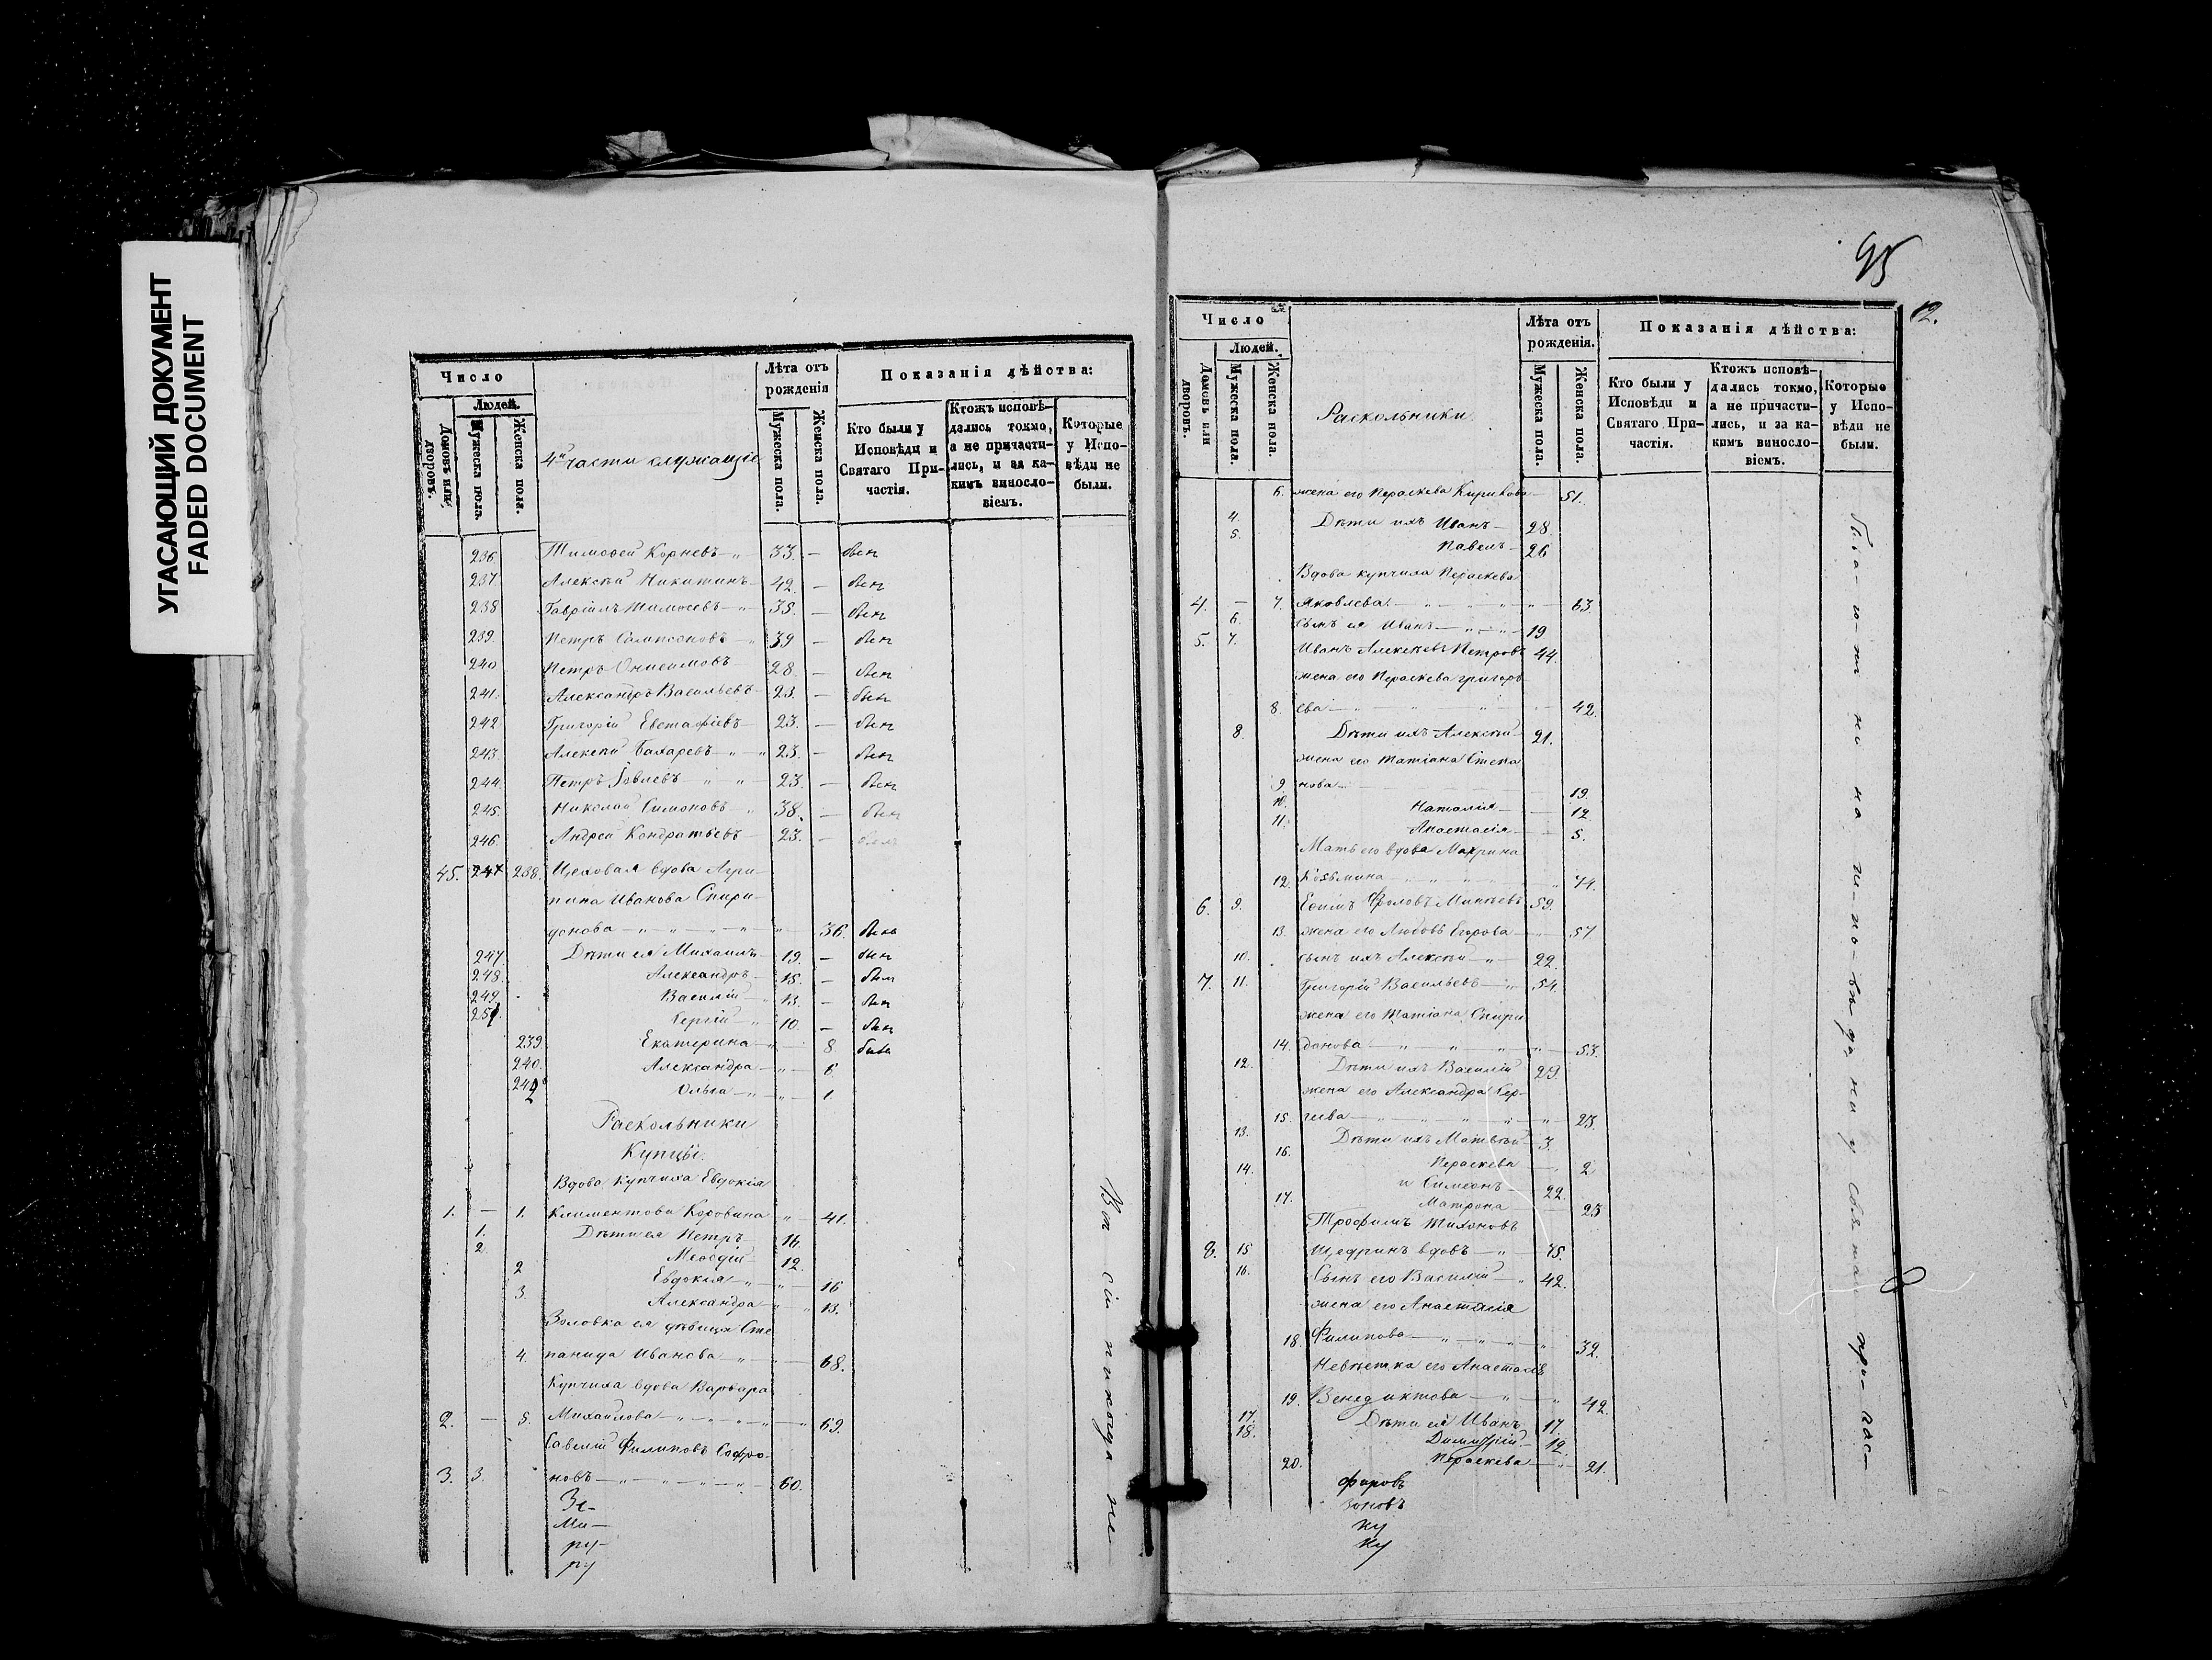 УГАСАЮЩИЙ ДОКУМЕНТ
FADED DOCUMENT
Число
Людей.
Домовъ или дворовъ.
Мужеска пола.
Женска пола.
4й части служащіе
Лѣта отъ рожденія
Мужеска пола.
Женска пола.
Показанія дѣйства:
Кто были у Исповѣди и Святаго Причастія.
Ктожъ исповѣдались токмо, а не причастились, и за какимъ винословіемъ.
Которые у Исповѣди не были.
236. Тимофей Корневъ 33. — былъ
237. Алексѣй Никитинъ 42. — былъ
238 Гавріилъ Тимофеевъ 35. — былъ
239. Петръ Сампсоновъ 39 — былъ
240 Петръ Онисимовъ 28. — былъ
241. Александръ Васильевъ 23. — былъ
242 Григорій Евстафіевъ 23. — былъ
243. Алексѣй Бахаревъ 23. — былъ
244. Петръ Іовлевъ 23. — былъ
245. Николай Симоновъ 38. — былъ
246. Андрей Кондратьевъ 23. — былъ
45. 247 238. Цеховая вдова Агри-
пина Иванова Спири-
донова 36. была
247. Дѣти ея Михаилъ 19. — былъ
248. Александръ 15. — былъ
249. Василій 13. — былъ
251. Сергій 10. — былъ
239. Екатерина 8 была
240. Александра 6
242 Ольга 1
Раскольники
Купцы.
Вдова Купчиха Евдокія
1. — 1. Климентова Коровина 41.
1. Дѣти ея Петръ 14.
2. Меѳодій 12.
2 Евдокія 16
3. Александра 13.
Золовка ея дѣвица Сте
4. панида Иванова 68.
Купчиха вдова Варвара
2. — 5. Михайлова 69.
Савелій Филиповъ Софро-
3. 3. новъ 60.
Зе-
Ми-
ру-
ру
Вси сіи никогда не
95
12.
Число
Людей.
Домовъ или дворовъ.
Мужеска пола.
Женска пола.
Раскольники
Лѣта отъ рожденія.
Мужеска пола.
Женска пола.
Показанія дѣйства:
Кто были у Исповѣди и Святаго Причастія.
Ктожъ исповѣдались токмо, а не причастились, и за какимъ винословіемъ.
Которые у Исповѣди не были.
6. жена его Параскева Кирикова 51.
4. Дѣти ихъ Иванъ 28.
5. Павелъ 26
Вдова купчиха Параскева
4. — 7. Яковлева 63.
6. сынъ ея Иванъ 19
5. 7. Иванъ Алексѣевъ Петровъ 44.
жена его Параскева григорь
8. ева 42.
8. Дѣти ихъ Алексѣй 21.
жена его Татіана Степа
9. нова 19.
10. Наталія 12
11. Анастасія 5.
Мать его вдова Маврина
12. Козьмина 74.
6. 9. Ефимъ Фроловъ Минѣевъ 59.
13. жена его Любовь Егорова 57.
10. сынъ ихъ Алексѣй 22.
7. 11. Григорій Васильевъ 54.
жена его Татіана Спири
14. донова 53.
12. Дѣти ихъ Василій 29.
жена его Александра Сер-
15. геева 23.
13. Дѣти ихъ Матвѣй 3.
16. Параскева 2
14. и Симеонъ 22.
17. Матрона 23
Трофимъ Тихоновъ
8. 15 Щедринъ вдовъ 75.
16. Сынъ его Василій 42.
жена его Анастасія
18. Филипова 39.
Невѣстка его Анастасія
19. Венедиктова 42.
17. Дѣти ея Иванъ 17.
18. Димитрій 12.
20. Параскева 21.
фаровъ
зоновъ
ку
ку
бы-ва-ю-тъ ни на ис-по-вѣ-да, ни у свята-го при-час-